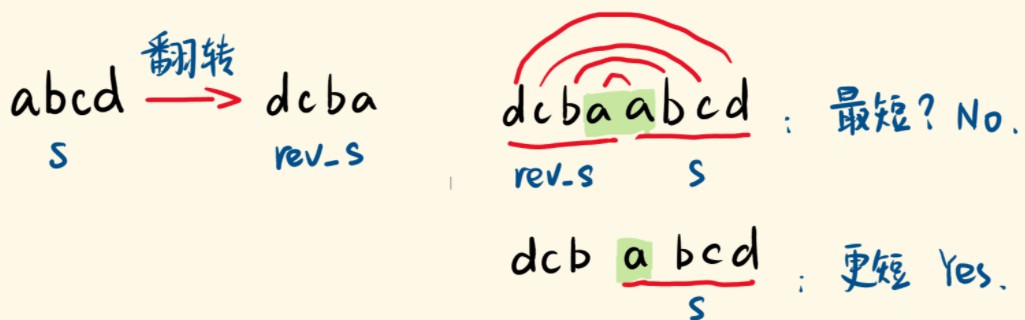 翻转
abcd → dcba
s rev_s
dcbaabcd : 最短? No.
rev_s s
dcb abcd : 更短 Yes.
s